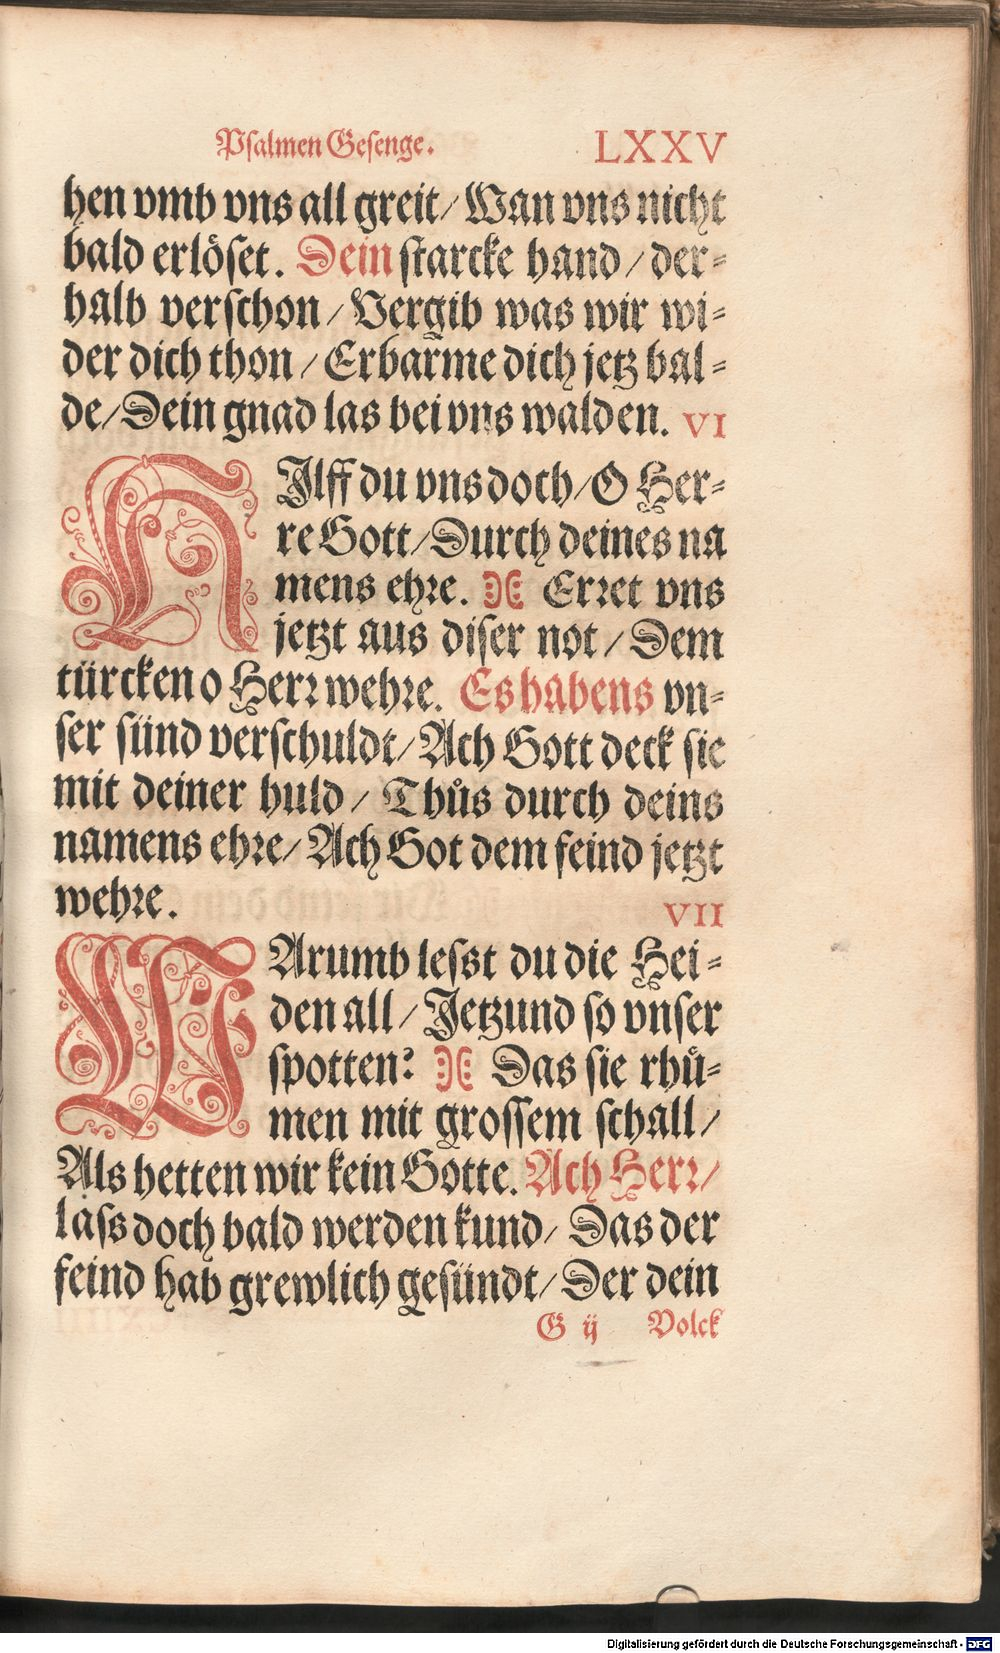 Psalmen Gesenge. LXXV
hen vmb vns all greit/ Wan vns nicht
bald erlöset. Dein starcke hand/ der-
halb verschon/ Vergib was wir wi-
der dich thon/ Erbarme dich jetz bal-
de/ Dein gnad las bei vns walden. VI
HIlff du vns doch/ O Her-
re Gott/ Durch deines na
mens ehre. Erret vns
jetzt aus diser not/ Dem
türcken o Herr wehre. Es habens vn-
ser sünd verschuldt/ Ach Gott deck sie
mit deiner huld/ Thůs durch deins
namens ehre/ Ach Got dem feind jetzt
wehre. VII
WArumb lesst du die Hei-
den all/ Jetzund so vnser
spotten? Das sie rhů-
men mit grossem schall/
Als hetten wir kein Gotte. Ach Herr/
lass doch bald werden kund/ Das der
feind hab grewlich gesündt/ Der dein
G ij Volck
Digitalisierung gefördert durch die Deutsche Forschungsgemeinschaft - DFG